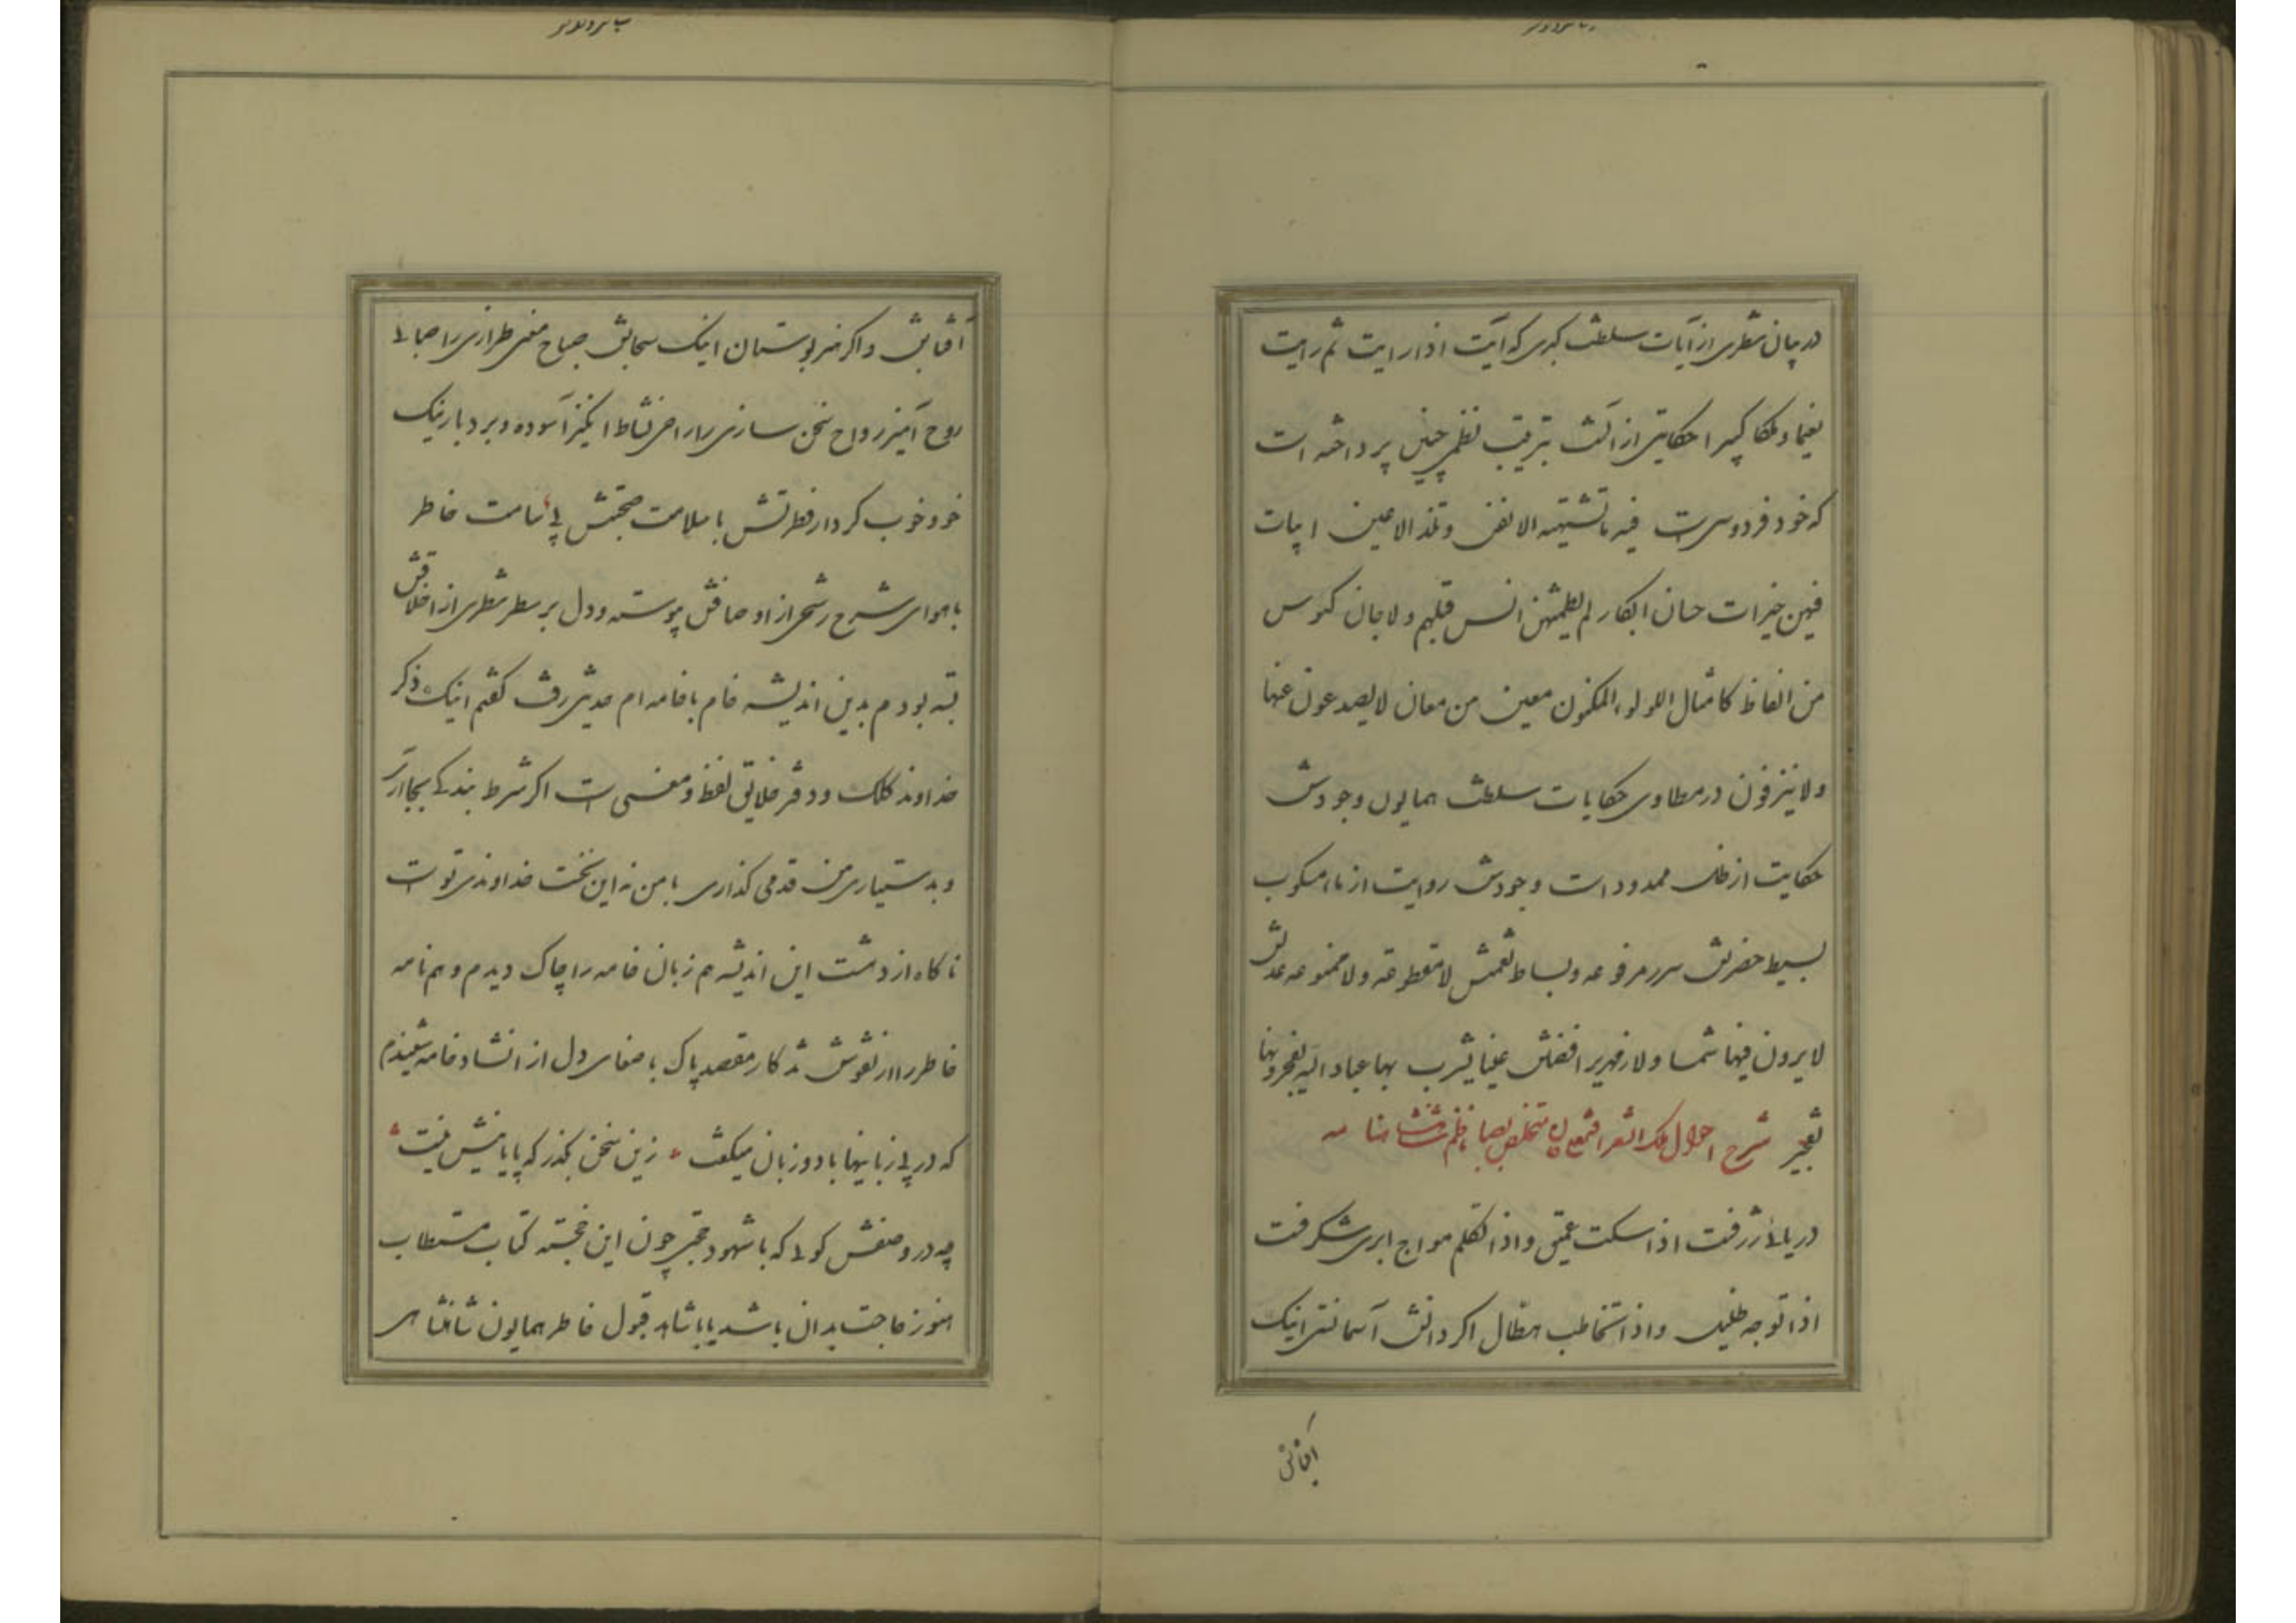 در بیان شطری از آیات سلطنت کبری که آیت اذا رایت ثم رایت
نعیما و ملکا کبیرا حکایتی از آنست بترتیب نظمی چنین پرداخته است
که خود فردوسی است فیه ما تشتهیه الانفس و تلذ الاعین ابیات
فیهن خیرات حسان ابکار لم یطمثهن انس قبلهم ولا جان کئوس
من الفاظ کامثال اللؤلؤ المکنون معین من معان لا یصدعون عنها
ولا ینزفون در مطاوی حکایات سلطنت همایون وجودش
حکایت از ظل ممدود است وجودش روایت از ماء مسکوب
بسیط حضرتش سرر مرفوعه و بساط نعمتش لا مقطوعة ولا ممنوعه عدلش
لا یرون فیها شمسا ولا زمهریرا فضلش عینا یشرب بها عباد الله یفجرونها
تفجیر شرح احوال ملک الشعرا فتحعلی خان متخلص بصبا ناظم شهنشاهنامه
دریائی ژرفست اذا سکت عمیق و اذا تکلم مواج ابری شگرفست
اذا توجه ظلیل و اذا تخاطب هطّال اکر دانش آسمانستی اینک
آفتابش
آفتابش و اکر هنر بوستان اینک سحابش صباح معنی طرازی را صبائی
روح آمیز رواح سخن سازی را راحی نشاط انگیز آسوده و برد بار نیک
خو و خوب کردار فطرتش با سلامت صحبتش بی سامت خاطر
با هوای شرح رشحی از اوصافش پیوسته و دل بر سطر شطری از اخلاقش
بسته بودم بدین اندیشه خام با خامه ام حدیثی رفت کفتم اینک ذکر
خداوند کلک و دفتر خلایق لفظ و معنی است اکر شرط بندکی بجا آری
و بدستیاری من قدمی کذاری با من نه این سخت خداوندی تو است
ناکاه از دهشت این اندیشه هم زبان خامه را چاک دیدم و هم نامه
خاطر را از نقوش شد کار مقصد پاک با صفای دل از انشاد خامه شنیدم
که در بی زبانیها با دو زبان میکفت زین سخن بگذر که پایانیش نیست
چه در وصفش کوئی که با شهود حجتی چون این خجسته کتاب مستطاب
هنوز حاجت بدان باشد یا با شاهد قبول خاطر همایون شاهنشاهی